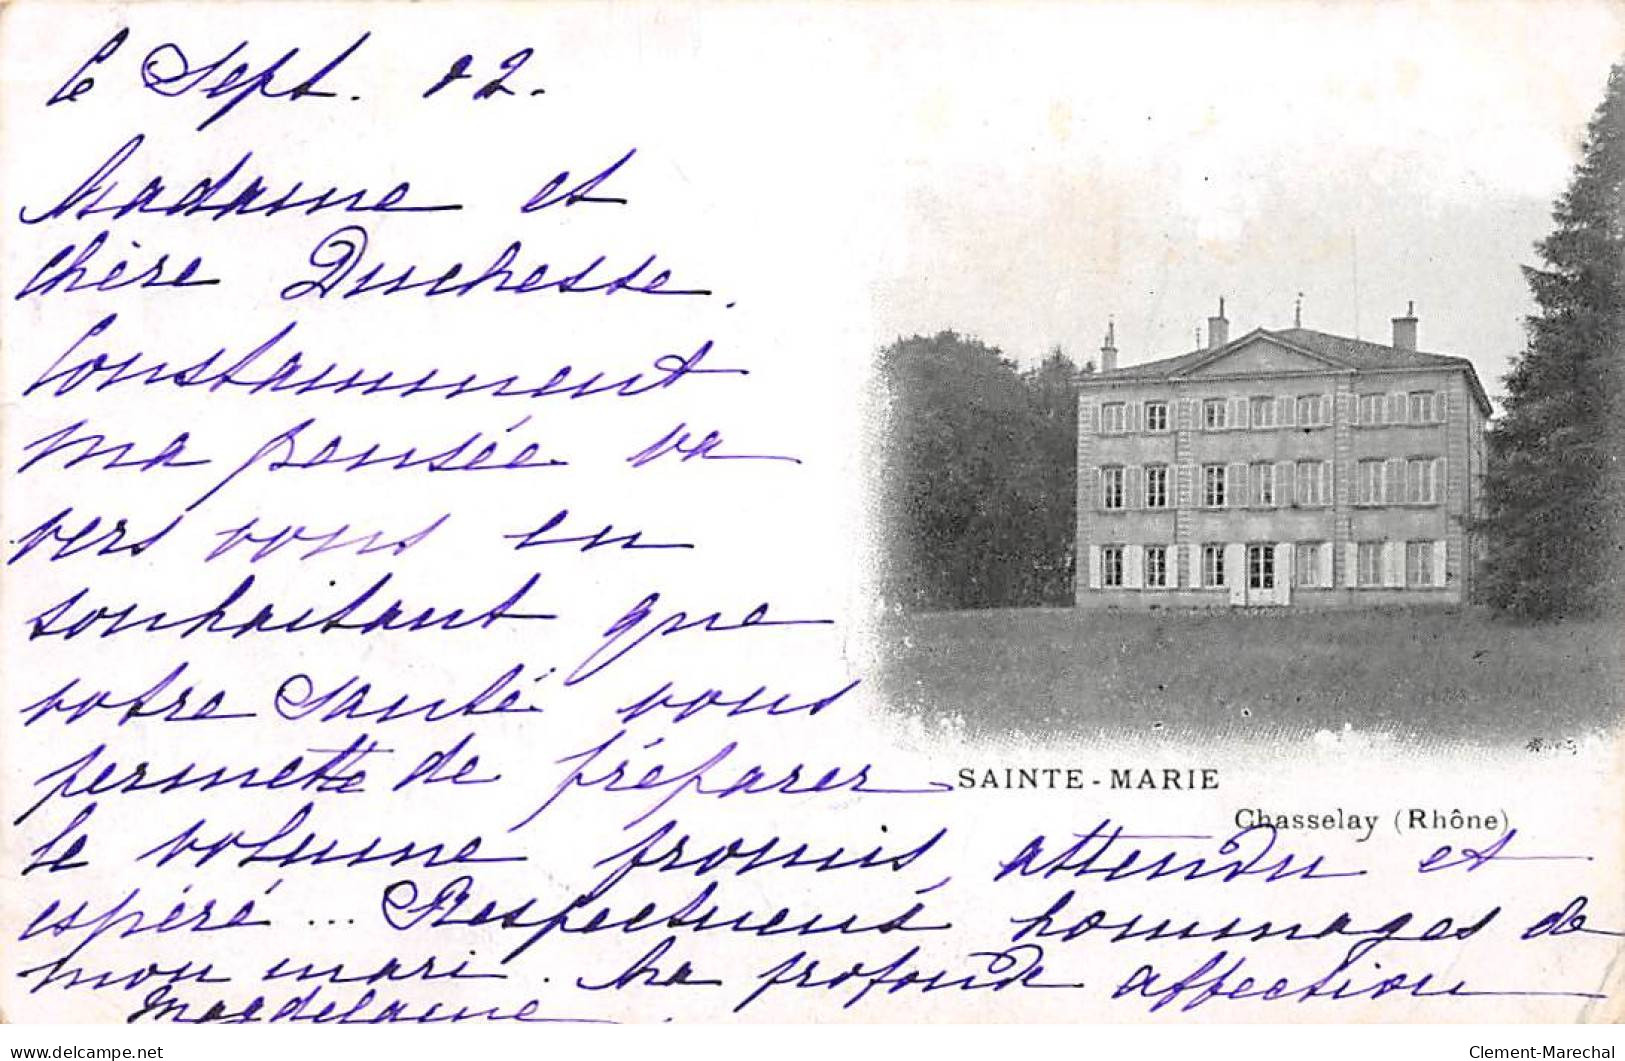 6 Sept. 02.
Madame et
chère Duchesse.
Constamment
ma pensée va
vers vous en
souhaitant que
votre santé vous
permette de préparer
SAINTE-MARIE
Chasselay (Rhône)
le volume promis, attendu et
espéré ... Respectueux hommages de
mon mari. Ma profonde affection
Magdelaine.
delcampe.net
Clement-Marechal